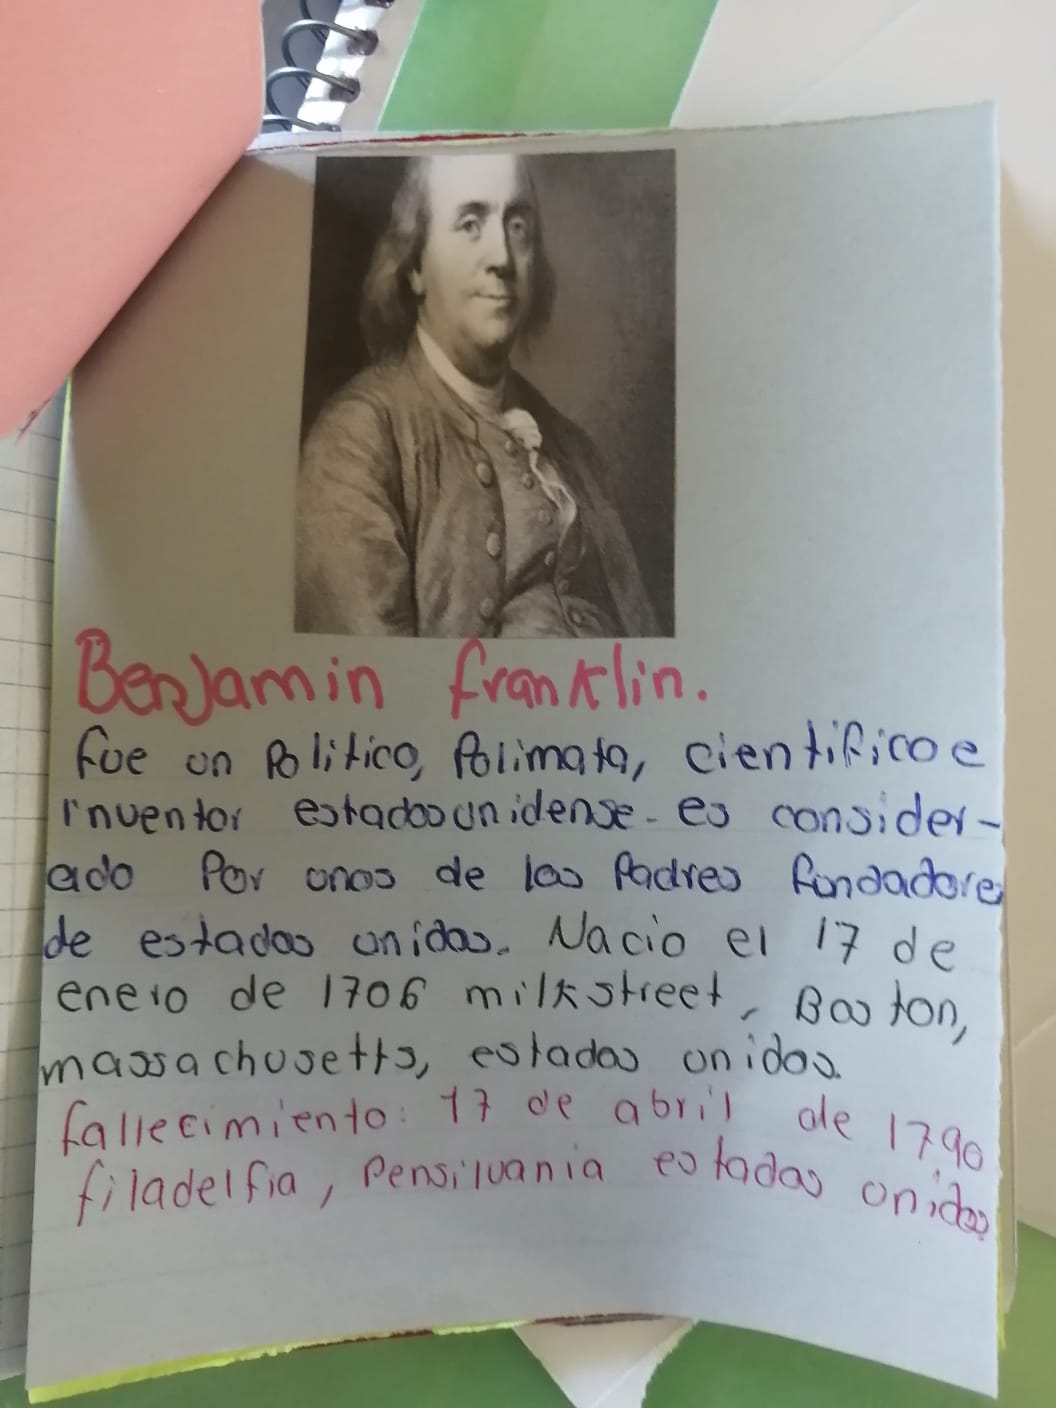 Benjamin franklin.
fue un Politico, Polimata, cientifico e
inventor estadounidense - es consider-
ado Por unos de los Padres fundadores
de estados unidos. Nacio el 17 de
enero de 1706 milkstreet, Boston,
massachusetts, estados unidos.
fallecimiento: 17 de abril de 1790
filadelfia, Pensilvania estados unidos